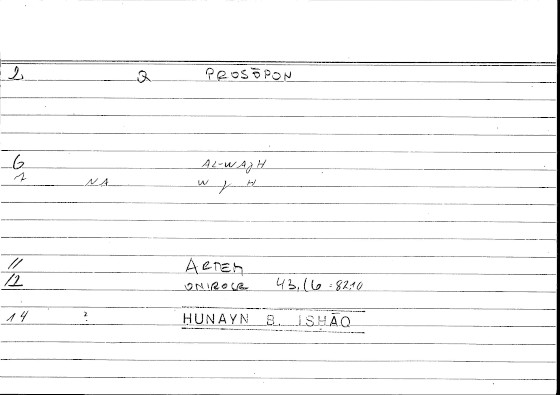 2 2 PROSŌPON
6 AL-WAJH
1 NA W J H
11 ARTEM
12 ONIROCR 43,16 = 82,10
14 ? HUNAYN B. ISḤĀQ